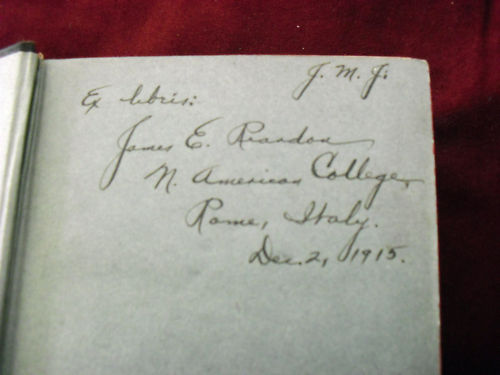 J. M. J.
Ex libris:
James E. Reardon
N. American College,
Rome, Italy.
Dec. 2, 1915.